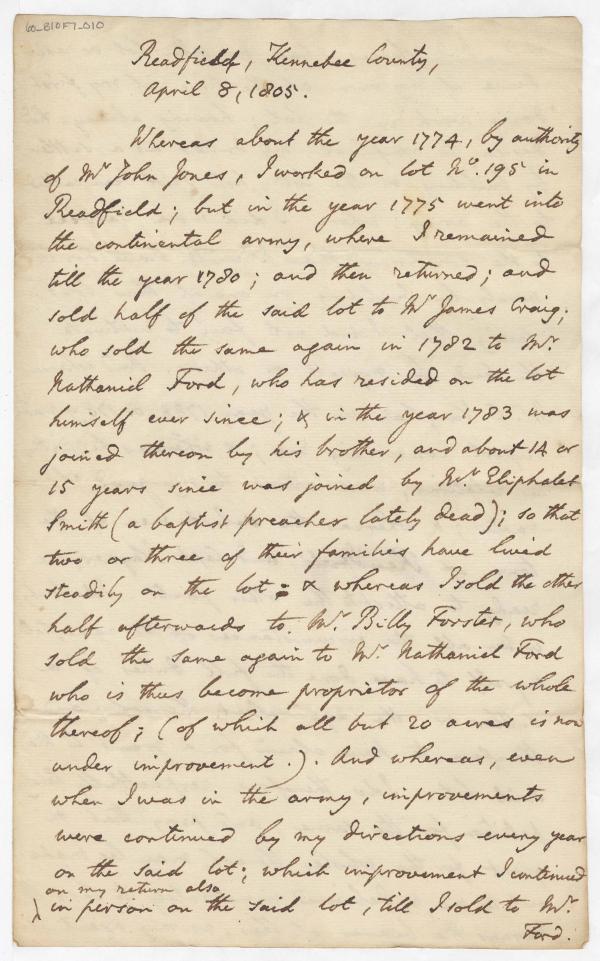 60_B10F7_010
Readfield, Kennebec County,
April 8, 1805.
Whereas about the year 1774, by authority
of Mr John Jones, I worked on lot No. 195 in
Readfield; but in the year 1775 went into
the continental army, where I remained
till the year 1780; and then returned; and
sold half of the said lot to Mr James Craig;
who sold the same again in 1782 to Mr.
Nathaniel Ford, who has resided on the lot
himself ever since; & in the year 1783 was
joined thereon by his brother, and about 14 or
15 years since was joined by Mr. Eliphalet
Smith (a baptist preacher lately dead); so that
two or three of their families have lived
steadily on the lot; & whereas I sold the other
half afterwards to Mr. Billy Forster, who
sold the same again to Mr. Nathaniel Ford
who is thus become proprietor of the whole
thereof; (of which all but 20 acres is now
under improvement.). And whereas, even
when I was in the army, improvements
were continued by my directions every year
on the said lot; which improvement I continued
on my return also
in person on the said lot, till I sold to Mr.
Ford.